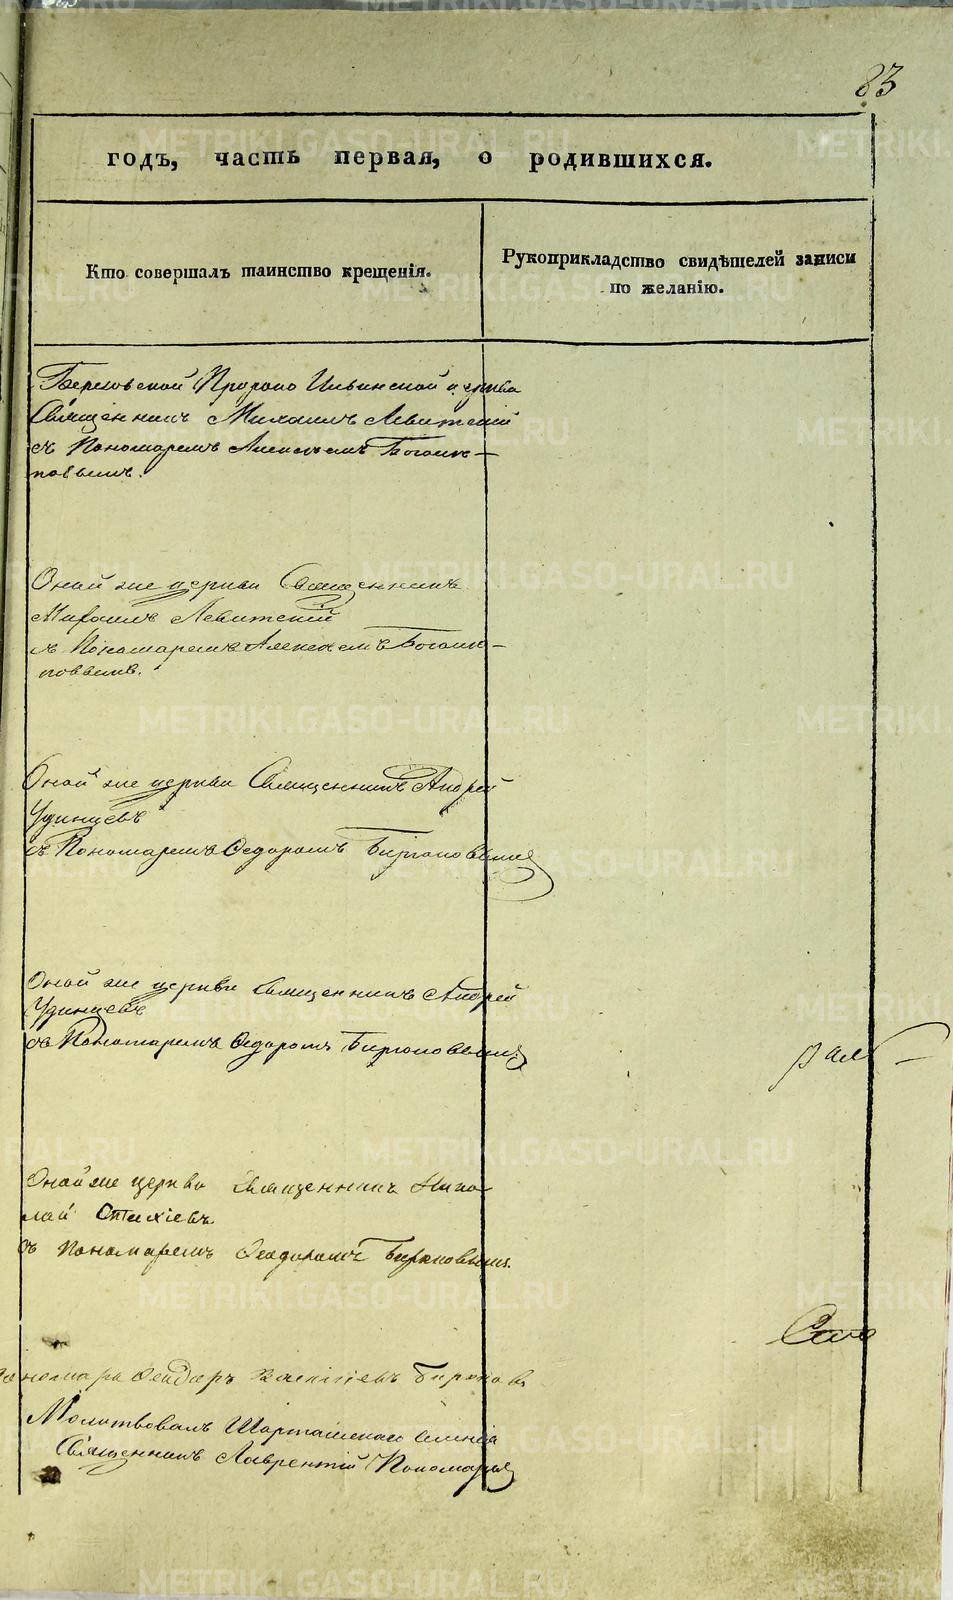 83
годъ, часть первая, о родившихся.
Кто совершалъ таинство крещенія.
Рукоприкладство свидѣтелей записи
по желанію.
Пророко Ильинской церкви
Священникъ Михаилъ Левитскій
съ Пономаремъ Алексѣемъ
Оной же церкви Священникъ
Михаилъ Левитскій
съ Пономаремъ Алексѣемъ
Оной же церкви Священникъ Андрей
Удинцевъ
съ Пономаремъ Ѳедоромъ Бирюковымъ
Оной же церкви Священникъ Андрей
Удинцевъ
съ Пономаремъ Ѳедоромъ Бирюковымъ
Оной же церкви Священникъ Нико
лай
съ Пономаремъ Ѳеодоромъ Бирюковымъ.
Пономарь Бирюковъ
Молитвовалъ Шарташскаго
Священникъ Лаврентій Пономаревъ
METRIKI.GASO-URAL.RU